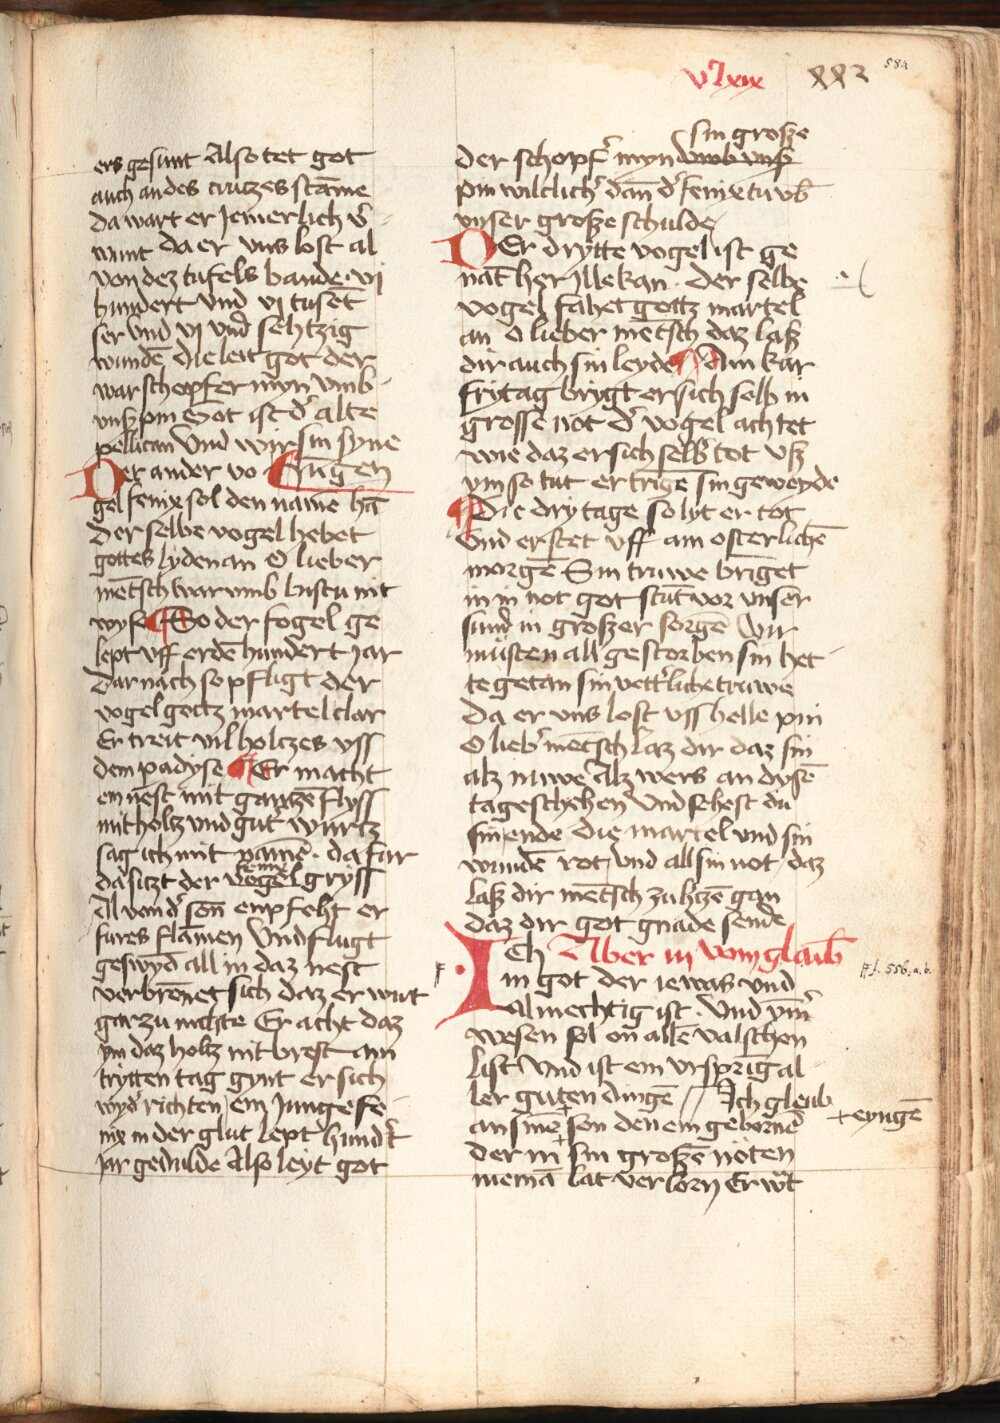 vꝰxix xxz 584
ers gesunt Also tet got
auch an des crutzes stāme
da wart er Jemerlich v̓
wunt da er vns lost al
von dez tufels bande · vi
hundert vnd vi tuset
ser vnd vi vnd sehtzig
wundē die leit got der
war schepfer myn vmb
vnß pin Got ist d̓ alte
pellican Vnd wir sin syne
Der ander vo Jungen
gel fenix sol den namē hā
der selbe vogel hebet
gottes lyden an O lieber
mētsch war vmb bistu nit
wyse So der fogel ge
lept vff erdē hundert jar
dar nach so pfligt der
vogel gottz martel clar
Er treit vil holczes vss
dem padyse Er macht
ein nest mit gantzē flyss
mit holtz vnd gut̓ wurtz
sag ich mit namē · da far
fenix
da siczt der vogel gryss
Al von d̓ son enpfeht er
fures flāmen Vnd flugt
geswyd all in daz nest
verbrōnet sich daz er wirt
gar zu nichte Er acht daz
ym daz holtz nit brest am
trytten tag gynt er sich
wyd̓ richten ein Junge fe
nix in der glut lept hund̓t
jar gedulde Also leyt got
sin große
der schopf̓ myn vmb vnß
pin wilclich̓ dān d̓ fenix tu vb̄
vnser große schulde
Der drytte vogel ist ge
nāt her Jllekan · der selbe
vogel fahet gottz martel
an O lieber mētsch daz laß
dir auch sin leydē Am kar
frytag brygt er sich selb in
grosse not d̓ vogel achtet
wie daz er sich selb̓ tot vß
ym so tut er trigē sin geweyde
Die dry tage so lyt er tot
vnd erstet vff am osterlichē
morgē Sin truwe bringet
in in not got stāt vor vnser
sund̓ in großer sorgē Wir
musten all gestorben sin het
te getan sin vett̓liche truwe
Da er vns lost vss helle pin
O lieb̓ mētsch laz dir daz sin
alz nuwe Alz wers an dysē
tage schehen Vnd sehest du
sin ende die martel vnd sin
wundē rot Vnd all sin not daz
laß dir mētsch zu h̓tzē gan
daz dir got gnade sende
ICh Aber iij vom glaub̄
in got der iewas vnd
Almechtig ist · Vnd ym̄̓
wesen sol on allē valschen
list Vnd ist ein vrsprīg al
ler guten dingē // Ich gleub
an sinē + son den ein gebornē + eyngē
der in sin großē nöten
niemā lat verlorn Er wꝛt
ff f. 556. a. b.